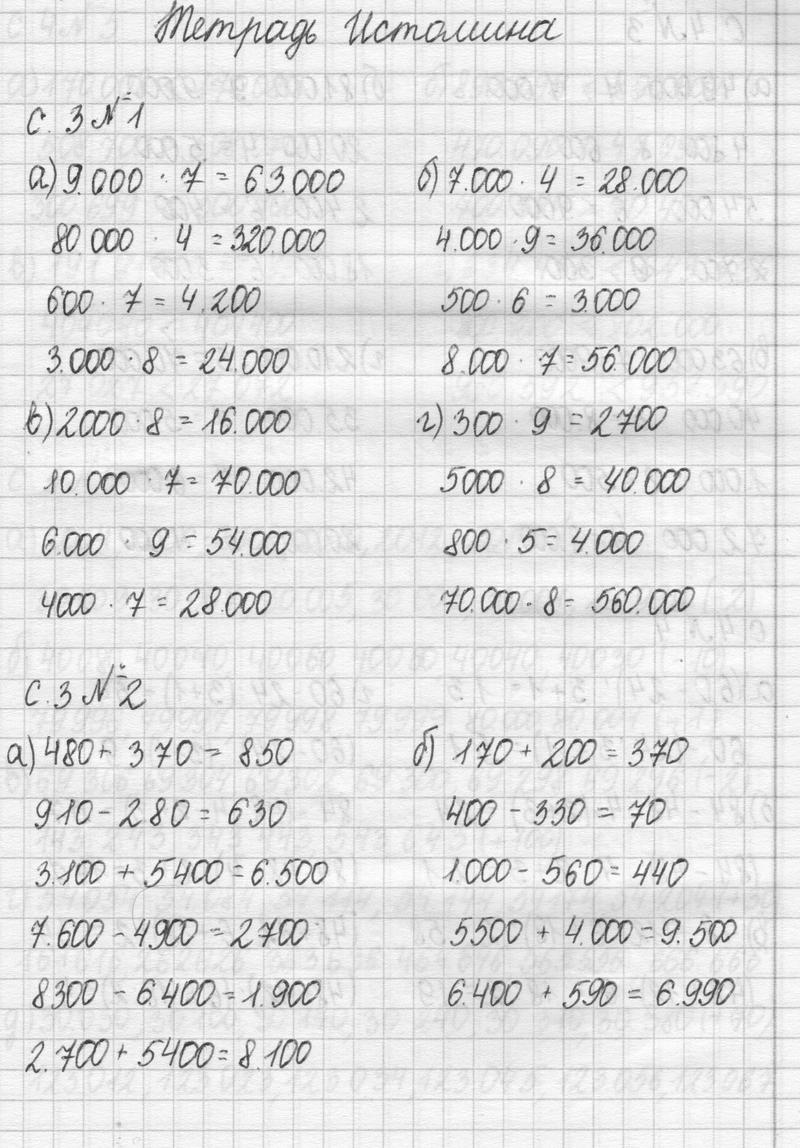 Тетрадь Истомина
с. 3 № 1
а) 9.000 · 7 = 63.000 б) 7.000 · 4 = 28.000
80 000 · 4 = 320.000 4.000 · 9 = 36.000
600 · 7 = 4.200 500 · 6 = 3.000
3.000 · 8 = 24.000 8.000 · 7 = 56.000
в) 2000 · 8 = 16.000 г) 300 · 9 = 2700
10.000 · 7 = 70.000 5000 · 8 = 40.000
6.000 · 9 = 54.000 800 · 5 = 4.000
4000 · 7 = 28.000 70.000 · 8 = 560.000
с. 3 № 2
а) 480 + 370 = 850 б) 170 + 200 = 370
910 - 280 = 630 400 - 330 = 70
3.100 + 5400 = 6.500 1.000 - 560 = 440
7.600 - 4900 = 2700 5500 + 4.000 = 9.500
8300 - 6.400 = 1.900 6.400 + 590 = 6.990
2.700 + 5400 = 8.100